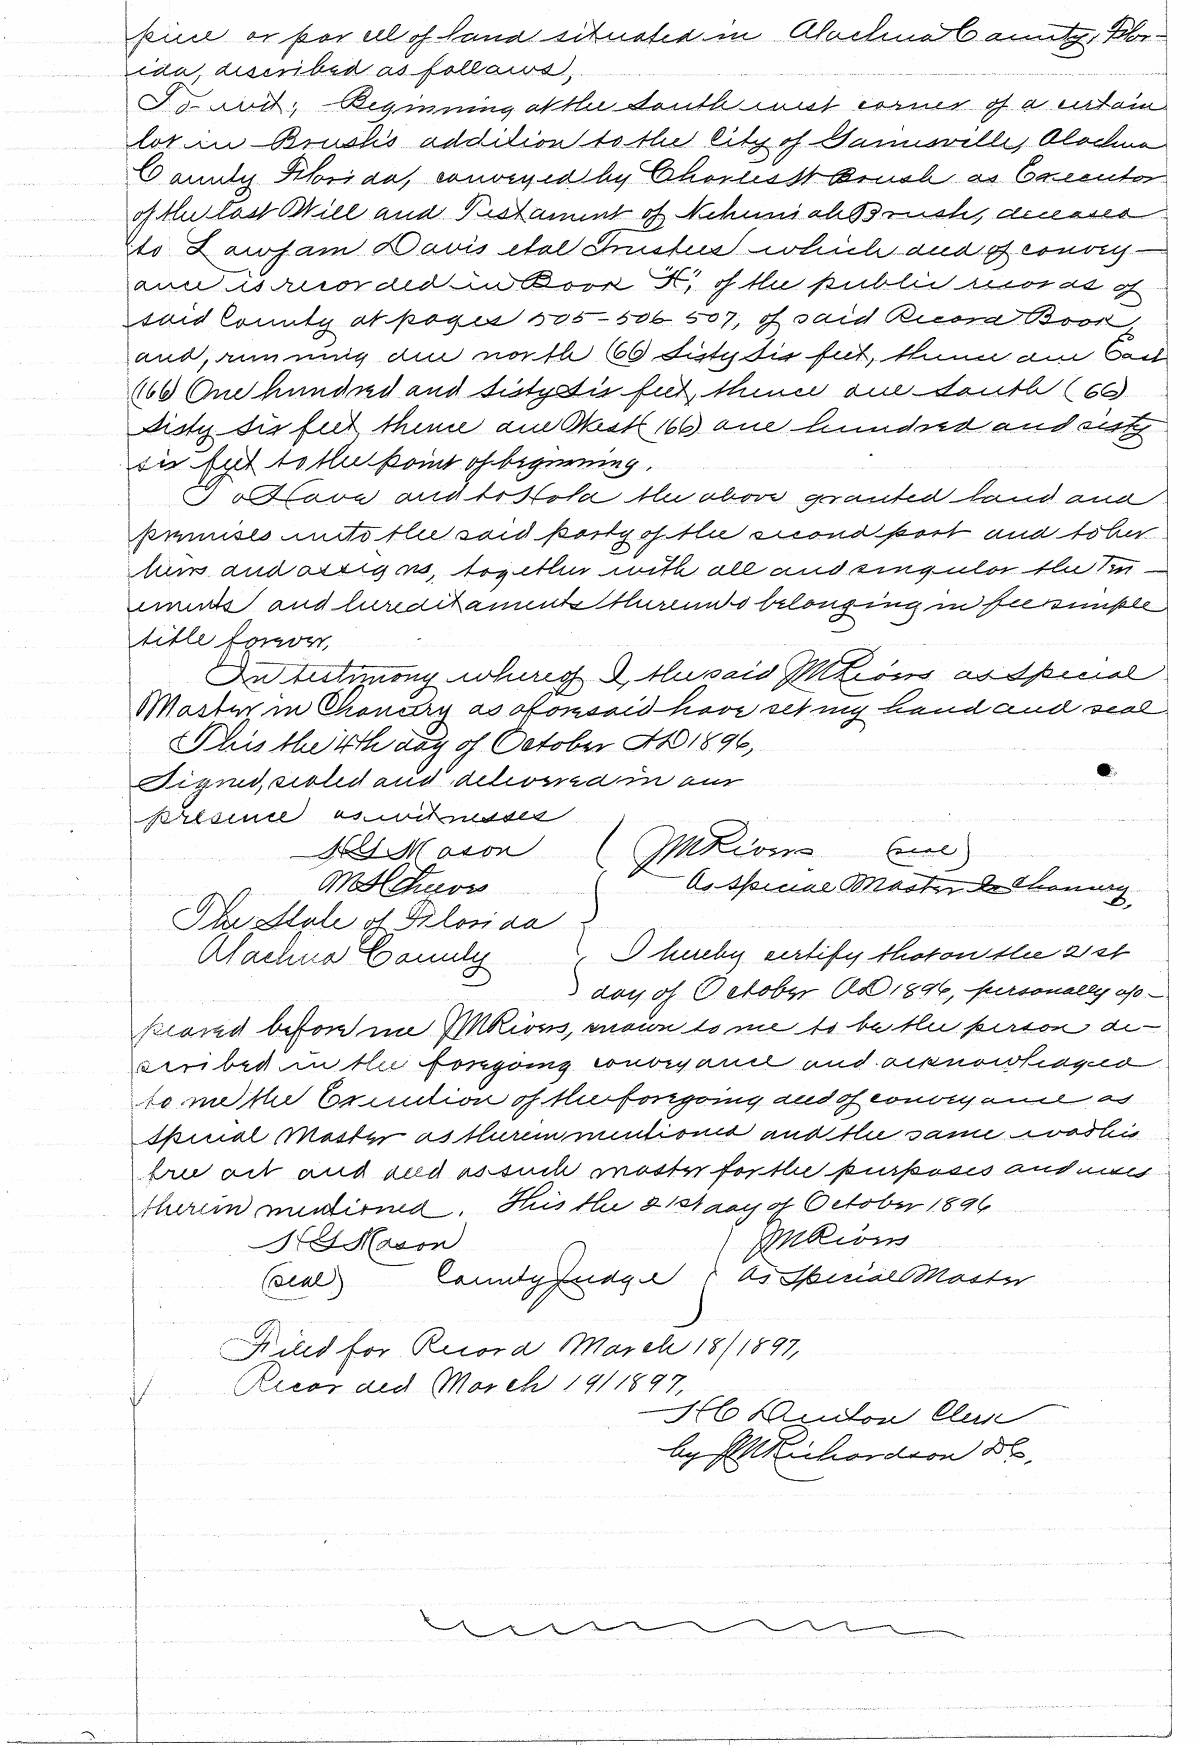 piece or parcell of land situated in Alachua County, Flor-
ida, described as follows,
To-wit; Beginning at the South west corner of a certain
lot in Brush's addition to the City of Gainesville, Alachua
County Florida, conveyed by Charles H Brush as Executor
of the last Will and Testament of Nehemiah Brush, deceased
to Davis etal Trustees which deed of convey-
ance is recorded in Book "K", of the public records of
said County at pages 505-506-507, of said Record Book,
and, running due north (66) Sisty Six feet, thence due East
(166) One hundred and Sisty Six feet, thence due South (66)
Sisty Six feet, thence due West (166) one hundred and sisty
six feet to the point of beginning.
To Have and to Hold the above granted land and
premises unto the said party of the second part and to her
heirs and assigns, together with all and singular the Ten-
ements and hereditaments thereunto belonging in fee simple
title forever,
In testimony whereof I, the said JM Rivers as Special
Master in Chancery as aforesaid have set my hand and seal
This the 4th day of October AD 1896,
Signed, sealed and delivered in our
presence as witnesses
HG Mason ( JM Rivers (seal)
As Special Master In Chancery,
The State of Florida
Alachua County I hereby certify that on the 21st
day of October AD 1896, personally ap-
peared before me JM Rivers, known to me to be the person de-
scribed in the foregoing conveyance and acknowledged
to me the Execution of the foregoing deed of conveyance as
Special Master as therein mentioned and the same was his
free act and deed as such master for the purposes and uses
therein mentioned. This the 21st day of October 1896
HG Mason JM Rivers
(seal) County Judge As Special Master
Filed for Record March 18/1897,
Recorded March 19/1897,
HC Denton Clerk
by JM Richardson DC,